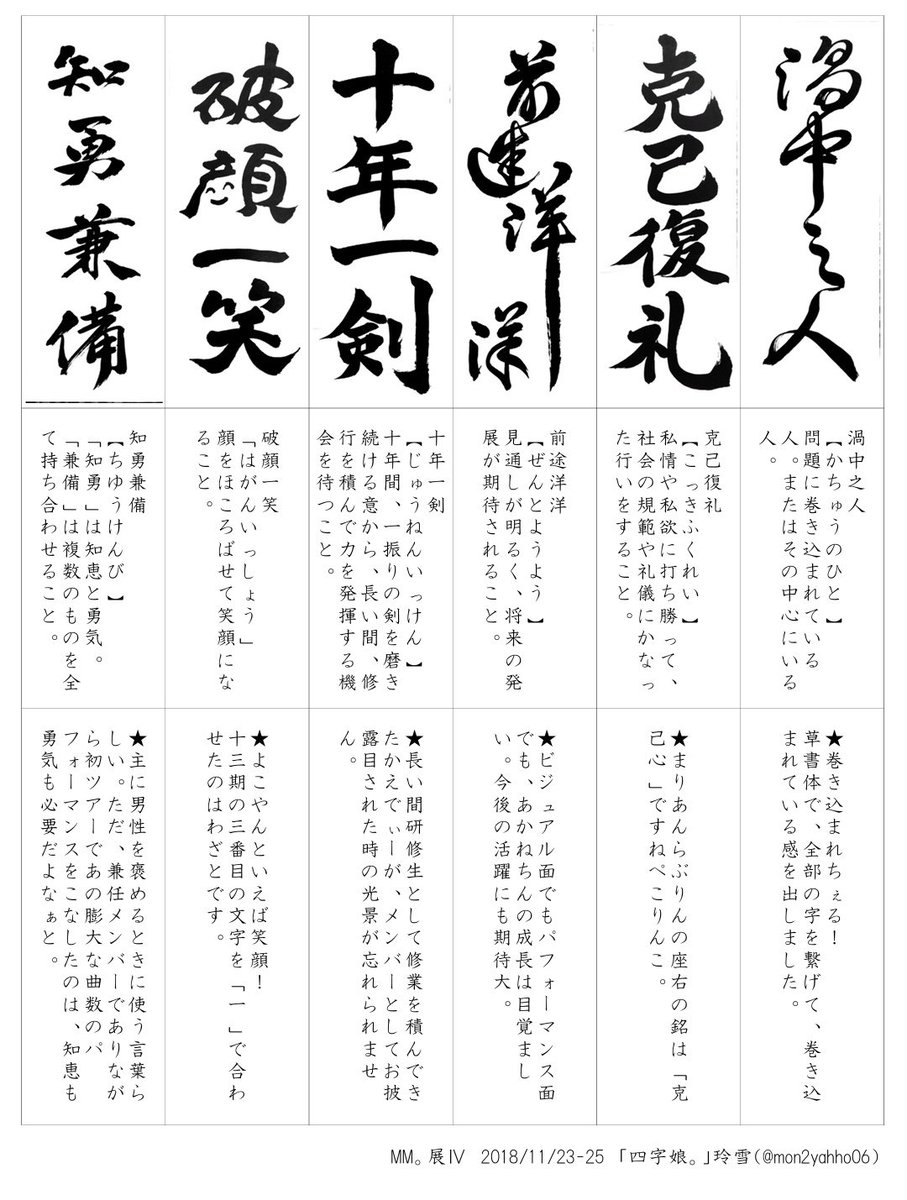 渦中之人
渦中之人
【かちゅうのひと】
問題に巻き込まれている
人。またはその中心にいる
人。
★巻き込まれちぇる!
草書体で、全部の字を繋げて、巻き込
まれている感を出しました。
克己復礼
克己復礼
【こっきふくれい】
私情や私欲に打ち勝って、
社会の規範や礼儀にかなっ
た行いをすること。
★まりあんらぶりんの座右の銘は「克
己心」ですねぺこりんこ。
前途洋洋
前途洋洋
【ぜんとようよう】
見通しが明るく、将来の発
展が期待されること。
★ビジュアル面でもパフォーマンス面
でも、あかねちんの成長は目覚まし
い。今後の活躍にも期待大。
十年一剣
十年一剣
【じゅうねんいっけん】
十年間、一振りの剣を磨き
続ける意から、長い間、修
行を積んで力を発揮する機
会を待つこと。
★長い間研修生として修業を積んでき
たかえでぃーが、メンバーとしてお披
露目された時の光景が忘れられませ
ん。
破顔一笑
破顔一笑
「はがんいっしょう」
顔をほころばせて笑顔にな
ること。
★よこやんといえば笑顔!
十三期の三番目の文字を「一」で合わ
せたのはわざとです。
知勇兼備
知勇兼備
【ちゆうけんび】
「知勇」は知恵と勇気。
「兼備」は複数のものを全
て持ち合わせること。
★主に男性を褒めるときに使う言葉ら
しい。ただ、兼任メンバーでありなが
ら初ツアーであの膨大な曲数のパ
フォーマンスをこなしたのは、知恵も
勇気も必要だよなぁと。
MM。展Ⅳ 2018/11/23-25 「四字娘。」玲雪(@mon2yahho06)